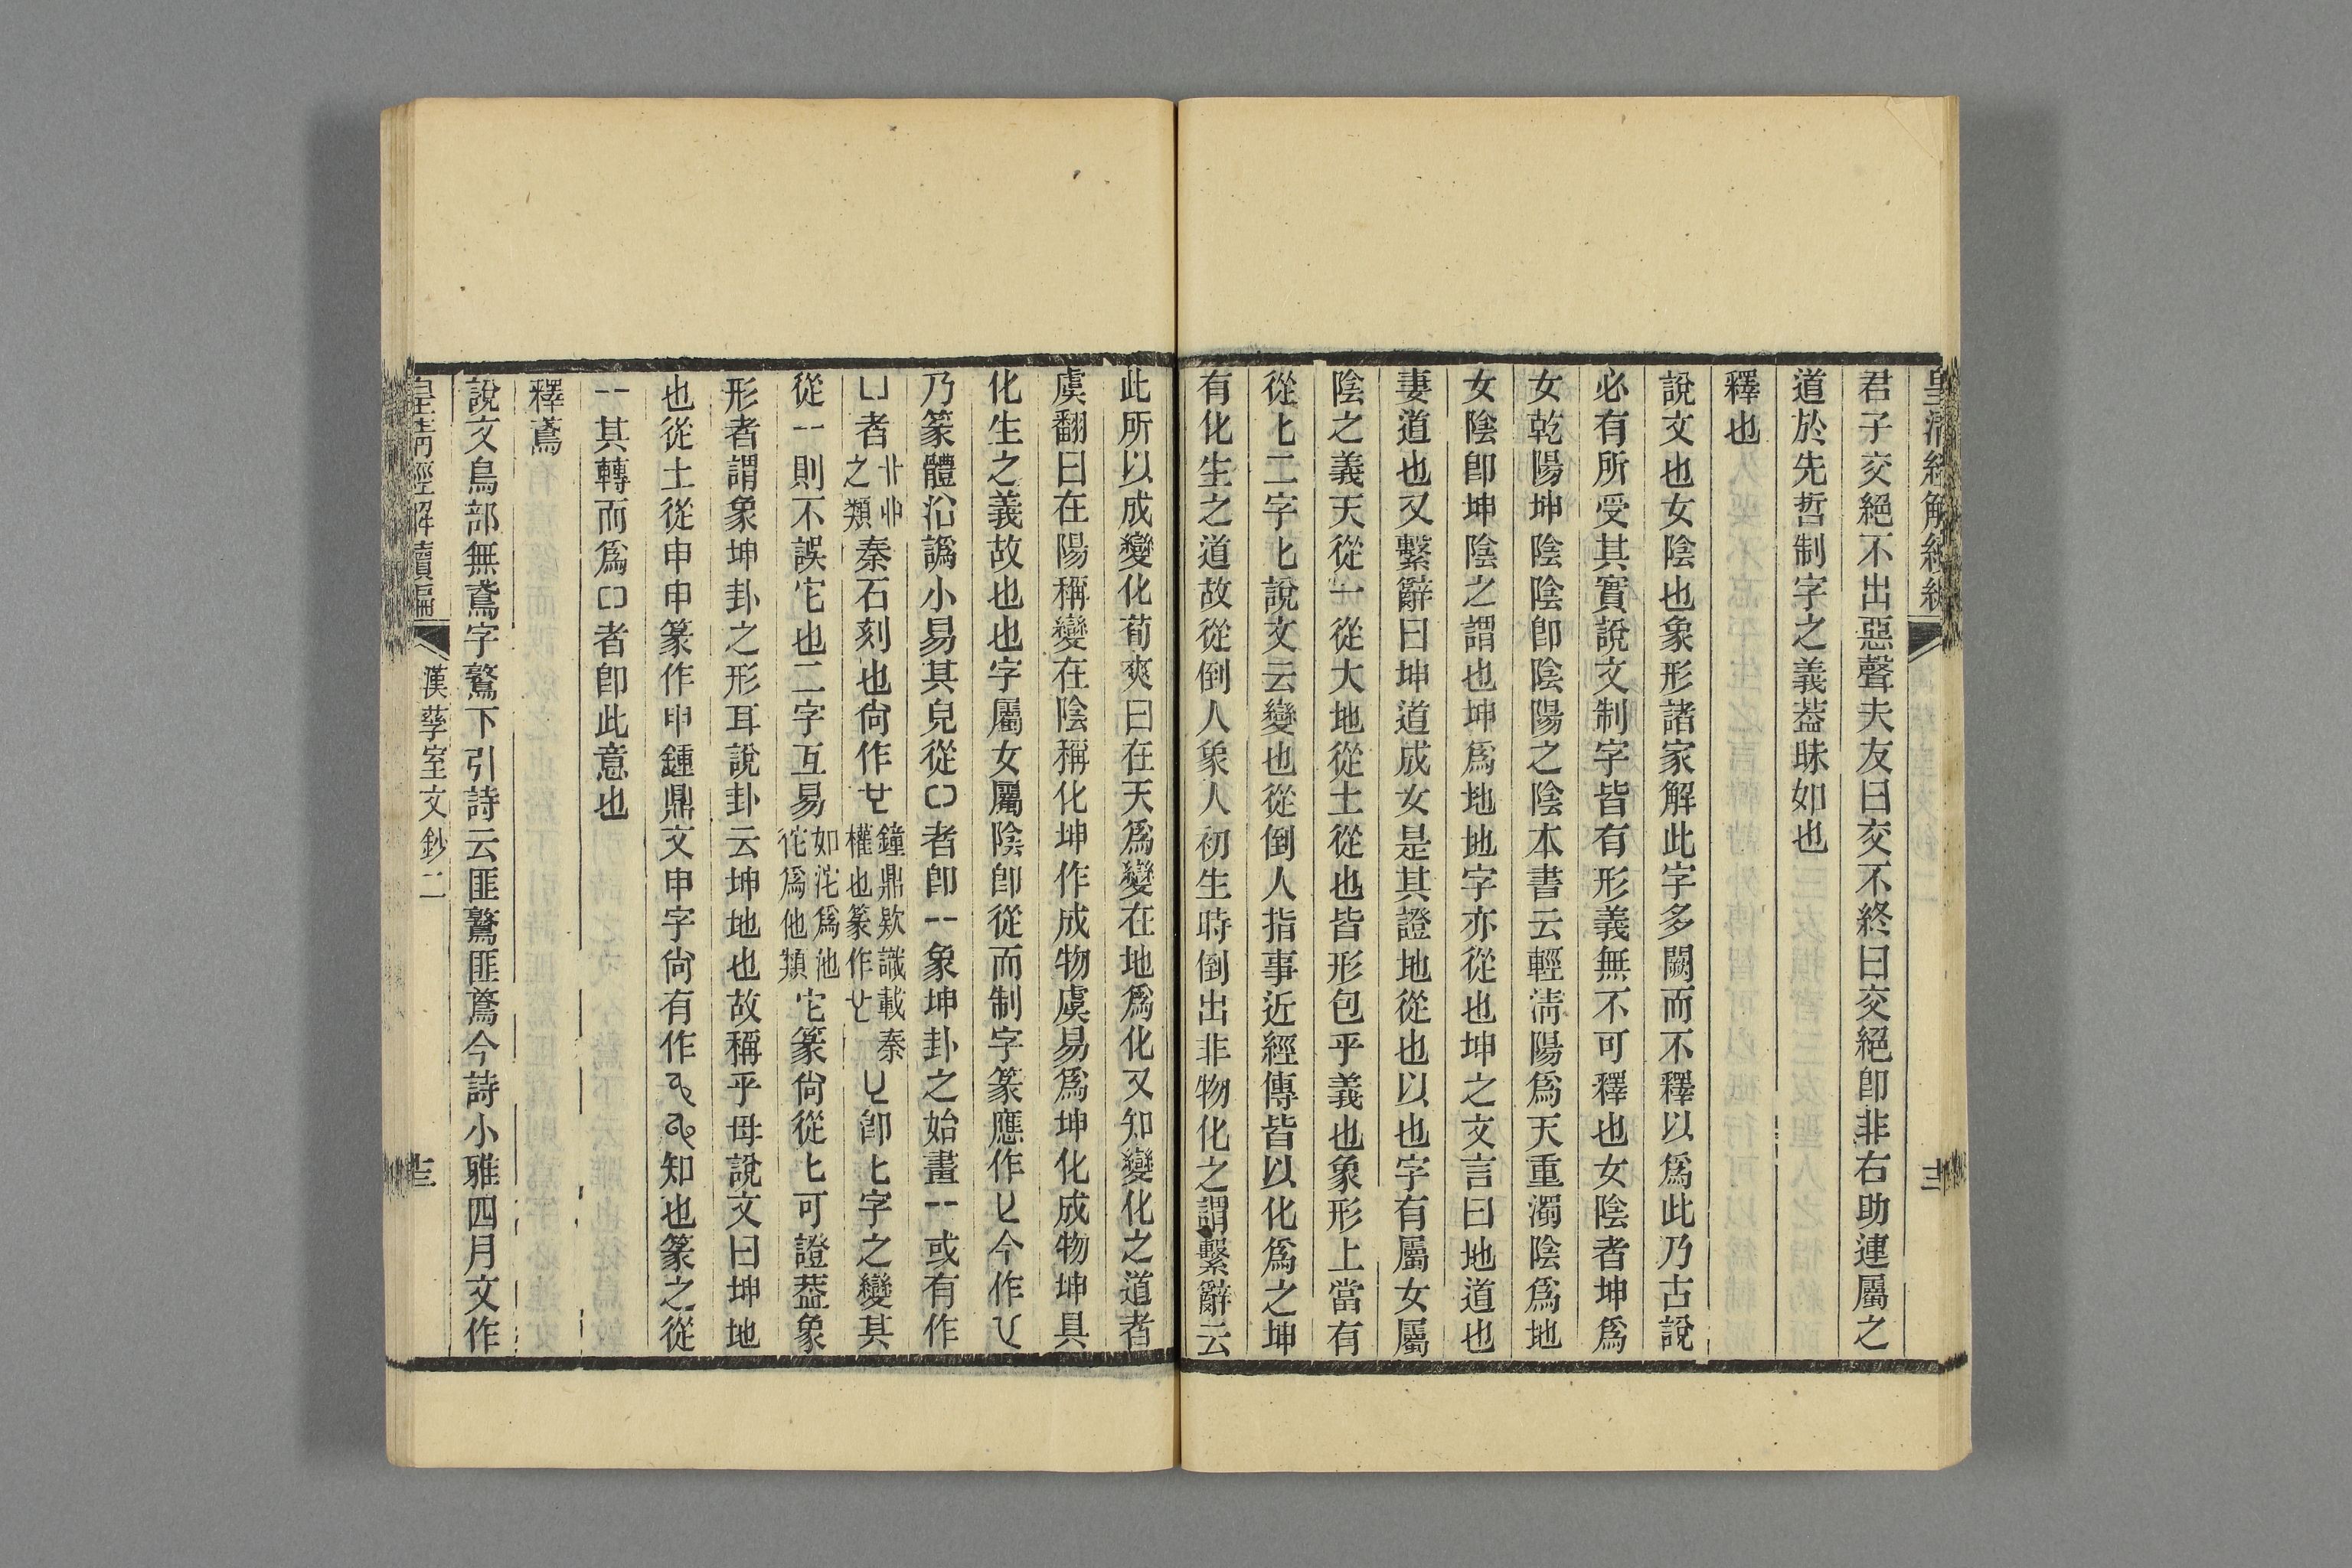 皇清經解續編
君子交絕不出惡聲夫友曰交不終曰交絕卽非右助連屬之
道於先哲制字之義葢昧如也
釋也
說文也女陰也象形諸家解此字多闕而不釋以爲此乃古說
必有所受其實說文制字皆有形義無不可釋也女陰者坤爲
女乾陽坤陰陰卽陰陽之陰本書云輕淸陽爲天重濁陰爲地
女陰卽坤陰之謂也坤爲地地字亦從也坤之文言曰地道也
妻道也又繫辭曰坤道成女是其證地從也以也字有屬女屬
陰之義天從一從大地從土從也皆形包乎義也象形上當有
從𠤎二字𠤎說文云變也從倒人指事近經傳皆以化爲之坤
有化生之道故從倒人象人初生時倒出非物化之謂繫辭云
此所以成變化荀爽曰在天爲變在地爲化又知變化之道者
虞翻曰在陽稱變在陰稱化坤作成物虞易爲坤化成物坤具
化生之義故也也字屬女屬陰卽從而制字篆應作 今作
乃篆體沿譌小易其皃從 者卽 象坤卦之始畫 或有作
凵者 之類 秦石刻也尙作 鐘鼎欵識載秦權也篆作 卽𠤎字之變其
從一則不誤它也二字互易如沱爲池佗爲他類它篆尙從𠤎可證葢象
形者謂象坤卦之形耳說卦云坤地也故稱乎母說文曰坤地
也從土從申申篆作 鍾鼎文申字尙有作 知也篆之從
其轉而爲 者卽此意也
釋鳶
說文鳥部無鳶字鷻下引詩云匪鷻匪鳶今詩小雅四月文作
皇淸經解續編 漢孳室文鈔二 十三